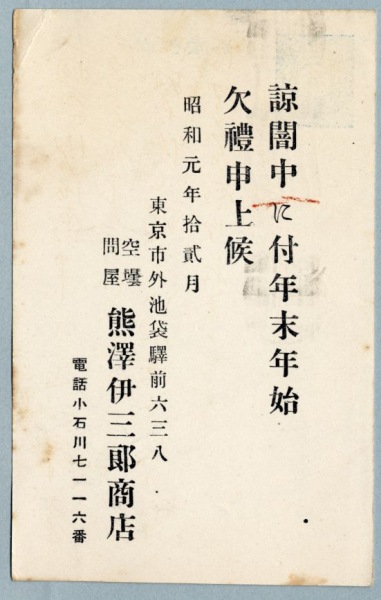 諒闇中に付年末年始
欠禮申上候
昭和元年拾貳月
東京市外池袋驛前六三八
空罎
問屋
熊澤伊三郎商店
電話小石川七一一六番